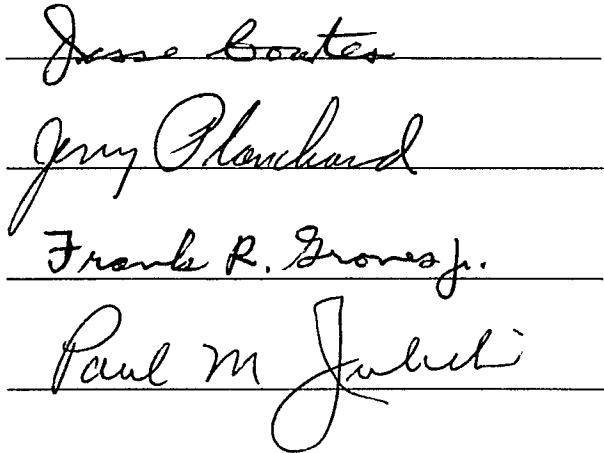 Jesse Coates
Jerry Planchard
Frank R. Groves Jr.
Paul M